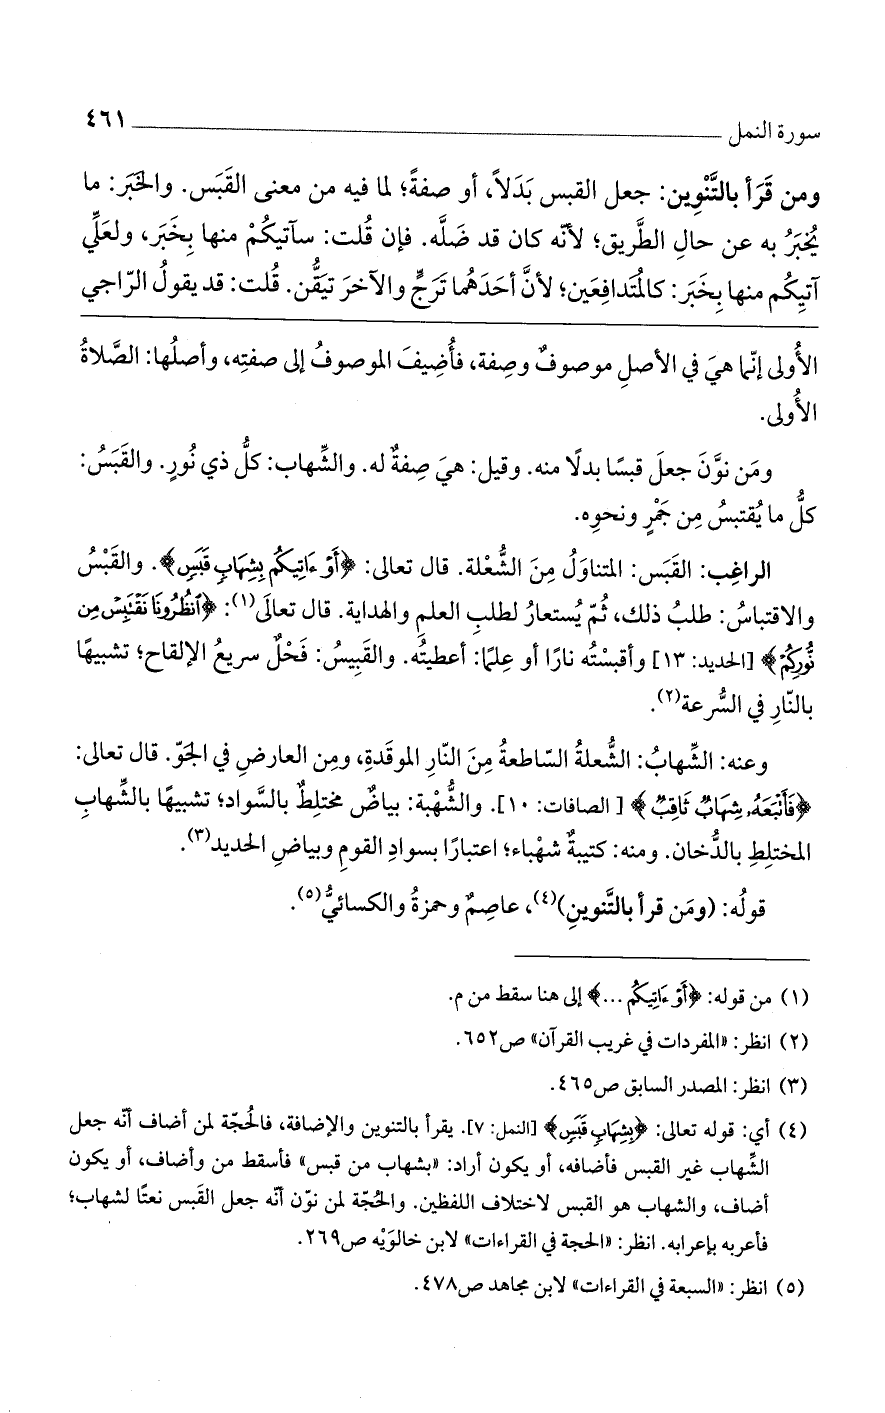 سورة النمل ٤٦١
ومن قَرَأ بالتَّنْوِين: جعل القبس بَدَلاً، أو صفةً؛ لما فيه من معنى القَبَس. والخَبَر: ما
يُخبَرُ به عن حالِ الطَّريق؛ لأنّه كان قد ضَلَّه. فإن قُلت: سآتيكُمْ منها بِخَبَر، ولعَلِّي
آتيِكُم منها بِخَبَر: كالمُتَدافِعَين؛ لأنَّ أحَدَهُما تَرَجٍّ والآخرَ تيَقُّن. قُلت: قد يقولُ الرّاجي
الأُولى إنّما هيَ في الأصلِ موصوفٌ وصِفة، فأُضِيفَ الموصوفُ إلى صفتِه، وأصلُها: الصَّلاةُ
الأُولى.
ومَن نوَّنَ جعلَ قبسًا بدلًا منه. وقيل: هيَ صِفةٌ له. والشِّهاب: كلُّ ذي نُورٍ. والقَبَسُ:
كلُّ ما يُقتبسُ مِن جَمْرٍ ونحوِه.
الراغِب: القَبَس: المتناوَلُ مِنَ الشُّعْلة. قال تعالى: ﴿أَوْ ءَاتِيكُم بِشِهَابٍ قَبَسٍ﴾. والقَبْسُ
والاقتباسُ: طلبُ ذلك، ثُمّ يُستعارُ لطلبِ العلمِ والهداية. قال تعالَى(١): ﴿ٱنظُرُونَا نَقْتَبِسْ مِن
نُّورِكُمْ﴾ [الحديد: ١٣] وأقبسْتُه نارًا أو عِلمًا: أعطيتُه. والقَبِيسُ: فَحْلٌ سريعُ الإلقاح؛ تشبيهًا
بالنّارِ في السُّرعة(٢).
وعنه: الشِّهابُ: الشُّعلةُ السّاطعةُ مِنَ النّارِ الموقَدةِ، ومِن العارضِ في الجَوّ. قال تعالى:
﴿فَأَتْبَعَهُۥ شِهَابٌ ثَاقِبٌ﴾ [ الصافات: ١٠]. والشُّهْبة: بياضٌ مختلِطٌ بالسَّواد؛ تشبيهًا بالشِّهابِ
المختلِطِ بالدُّخان. ومنه: كتيبةٌ شهْباء؛ اعتبارًا بسوادِ القومِ وبياضِ الحديد(٣).
قولُه: (ومَن قرأ بالتَّنوينِ)(٤)، عاصِمٌ وحمزةُ والكسائيُّ(٥).
(١) من قوله: ﴿أَوْ ءَاتِيكُم ...﴾ إلى هنا سقط من م.
(٢) انظر: «المفردات في غريب القرآن» ص٦٥٢.
(٣) انظر: المصدر السابق ص٤٦٥.
(٤) أي: قوله تعالى: ﴿بِشِهَابٍ قَبَسٍ﴾ [النمل: ٧]. يقرأ بالتنوين والإضافة، فالحُجّة لمن أضاف أنّه جعل
الشِّهاب غير القبس فأضافه، أو يكون أراد: «بشهاب من قبس» فأسقط من وأضاف، أو يكون
أضاف، والشهاب هو القبس لاختلاف اللفظين. والحُجّة لمن نوّن أنّه جعل القَبس نعتًا لشهاب؛
فأعربه بإعرابه. انظر: «الحجة في القراءات» لابن خالوَيْه ص٢٦٩.
(٥) انظر: «السبعة في القراءات» لابن مجاهد ص٤٧٨.